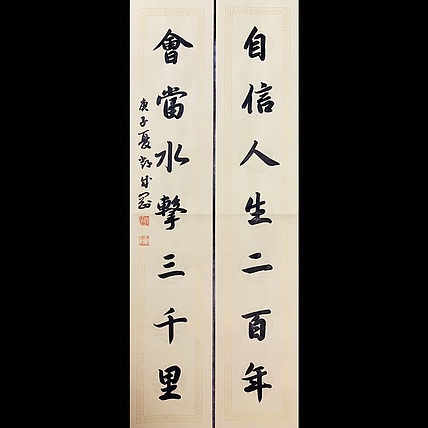 自信人生二百年
會當水擊三千里
庚子夏